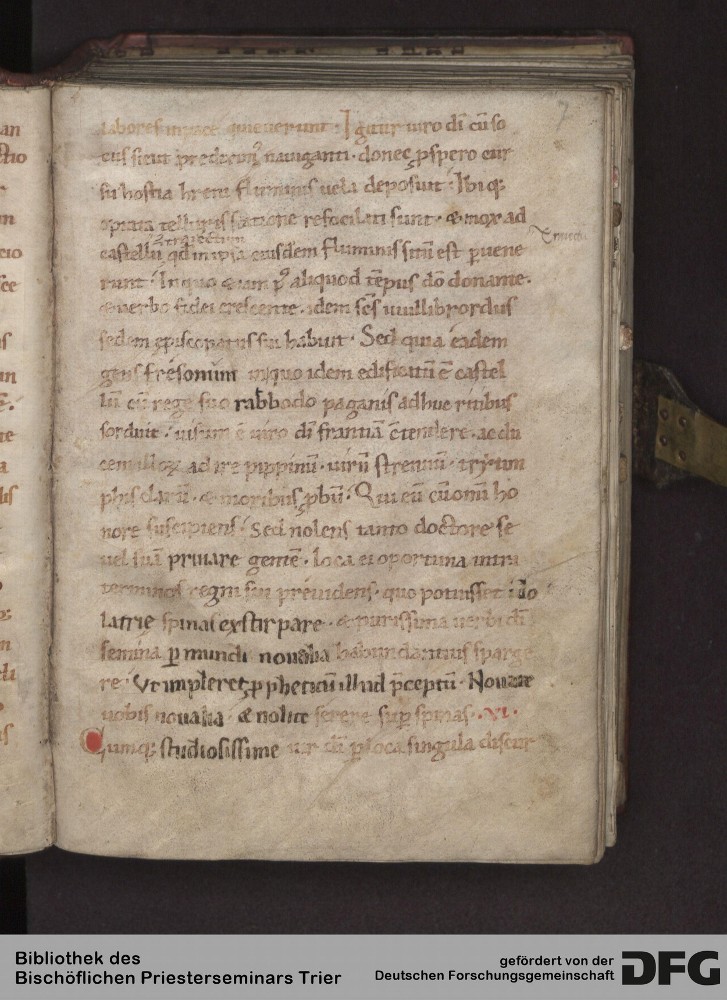 labores in pace quieuerunt. Igitur uiro di cū so
ciis sicut prediximꝰ nauiganti. donec ꝓspero cur
su hostia hreni fluminis uela deposuit. Ibiq;
optata telluris statione refociliati sunt. & mox ad
castellū qd in ripa eiusdem fluminis sitū est puene
runt. In quo & um pꝰ aliquod tēpus dō donante.
& uerbo fidei crescente. idem scs uuillibrordus
sedem episcopatus sui habuit. Sed quia eadem
gens fresonum in quo idem edificatū ē castel
lū cū rege suo rabbodo paganis adhuc ritibus
sorduit. uisum ē uiro di frantiā ctendere. ac du
cem illoꝝ adire pippinū. uirū strenuū. trium
phis clarū. & moribus ꝓbū. Qui eū cū omni ho
nore suscipiens. Sed nolens tanto doctore se
uel suā priuare gentē. loca ei oportuna intra
terminos regni sui preuidens. quo potuisset ido
latrie spinas exstirpare. & purissima uerbi di
semina p mundi noualia habundantius sparge
re. Vt impleret ꝓpheticū illud pceptū. Nouate
uobis noualia. & nolite serere sup spinas. XI.
Cumq; studiosissime uir di p loca singula discur
7
an
r
m
cio
sce
in
a
lis
n
Bibliothek des
Bischöflichen Priesterseminars Trier
gefördert von der
Deutschen Forschungsgemeinschaft
DFG